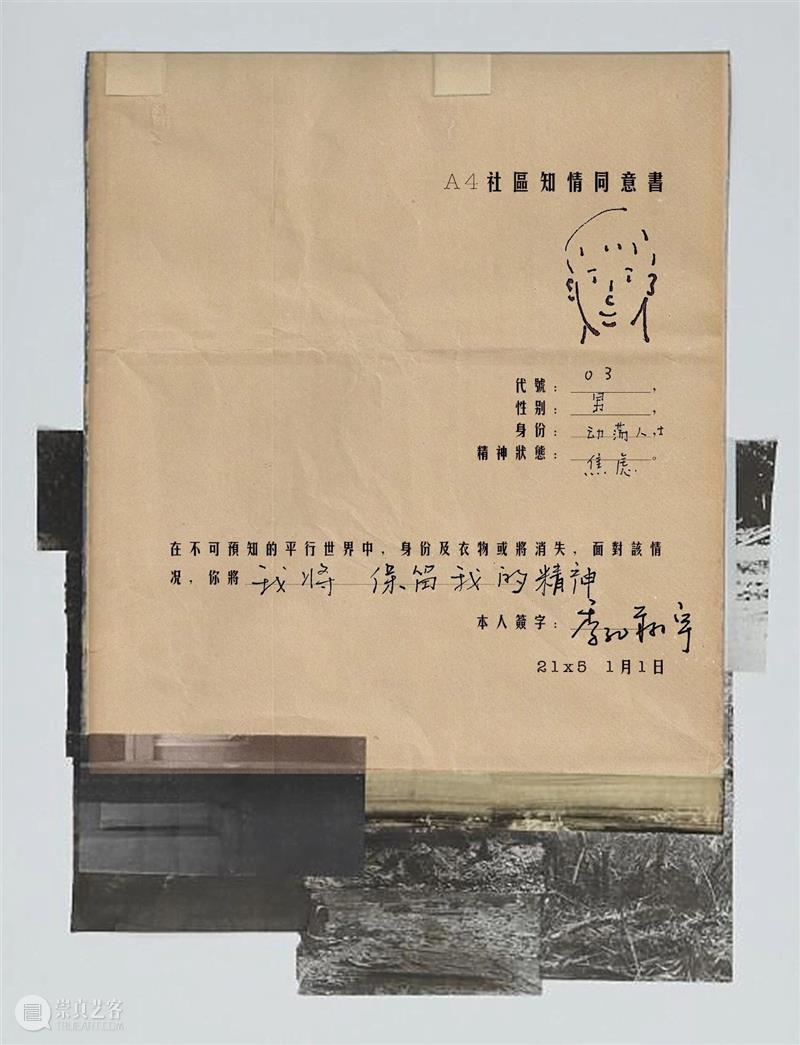 A4社區知情同意書
代號：03，
性别：男，
身份：动荡人士，
精神狀態：焦虑。
在不可預知的平行世界中，身份及衣物或將消失，面對該情
况，你將 我将 保留我的精神
本人簽字：李
21x5 1月1日
崇真艺客
TRUEART.COM